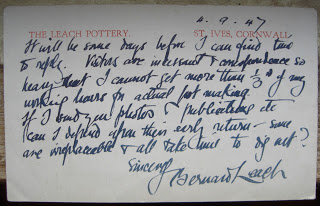 4.9.47
THE LEACH POTTERY. ST. IVES, CORNWALL
It will be some days before I can find time
to reply. Visitors are incessant & correspondence so
heavy that I cannot get more than 1/3 of my
working hours for actual pot making.
If I send you photos & publications etc
can I depend upon their early return – some
are irreplaceable & all take time to dig out?
Sincerely
Bernard Leach